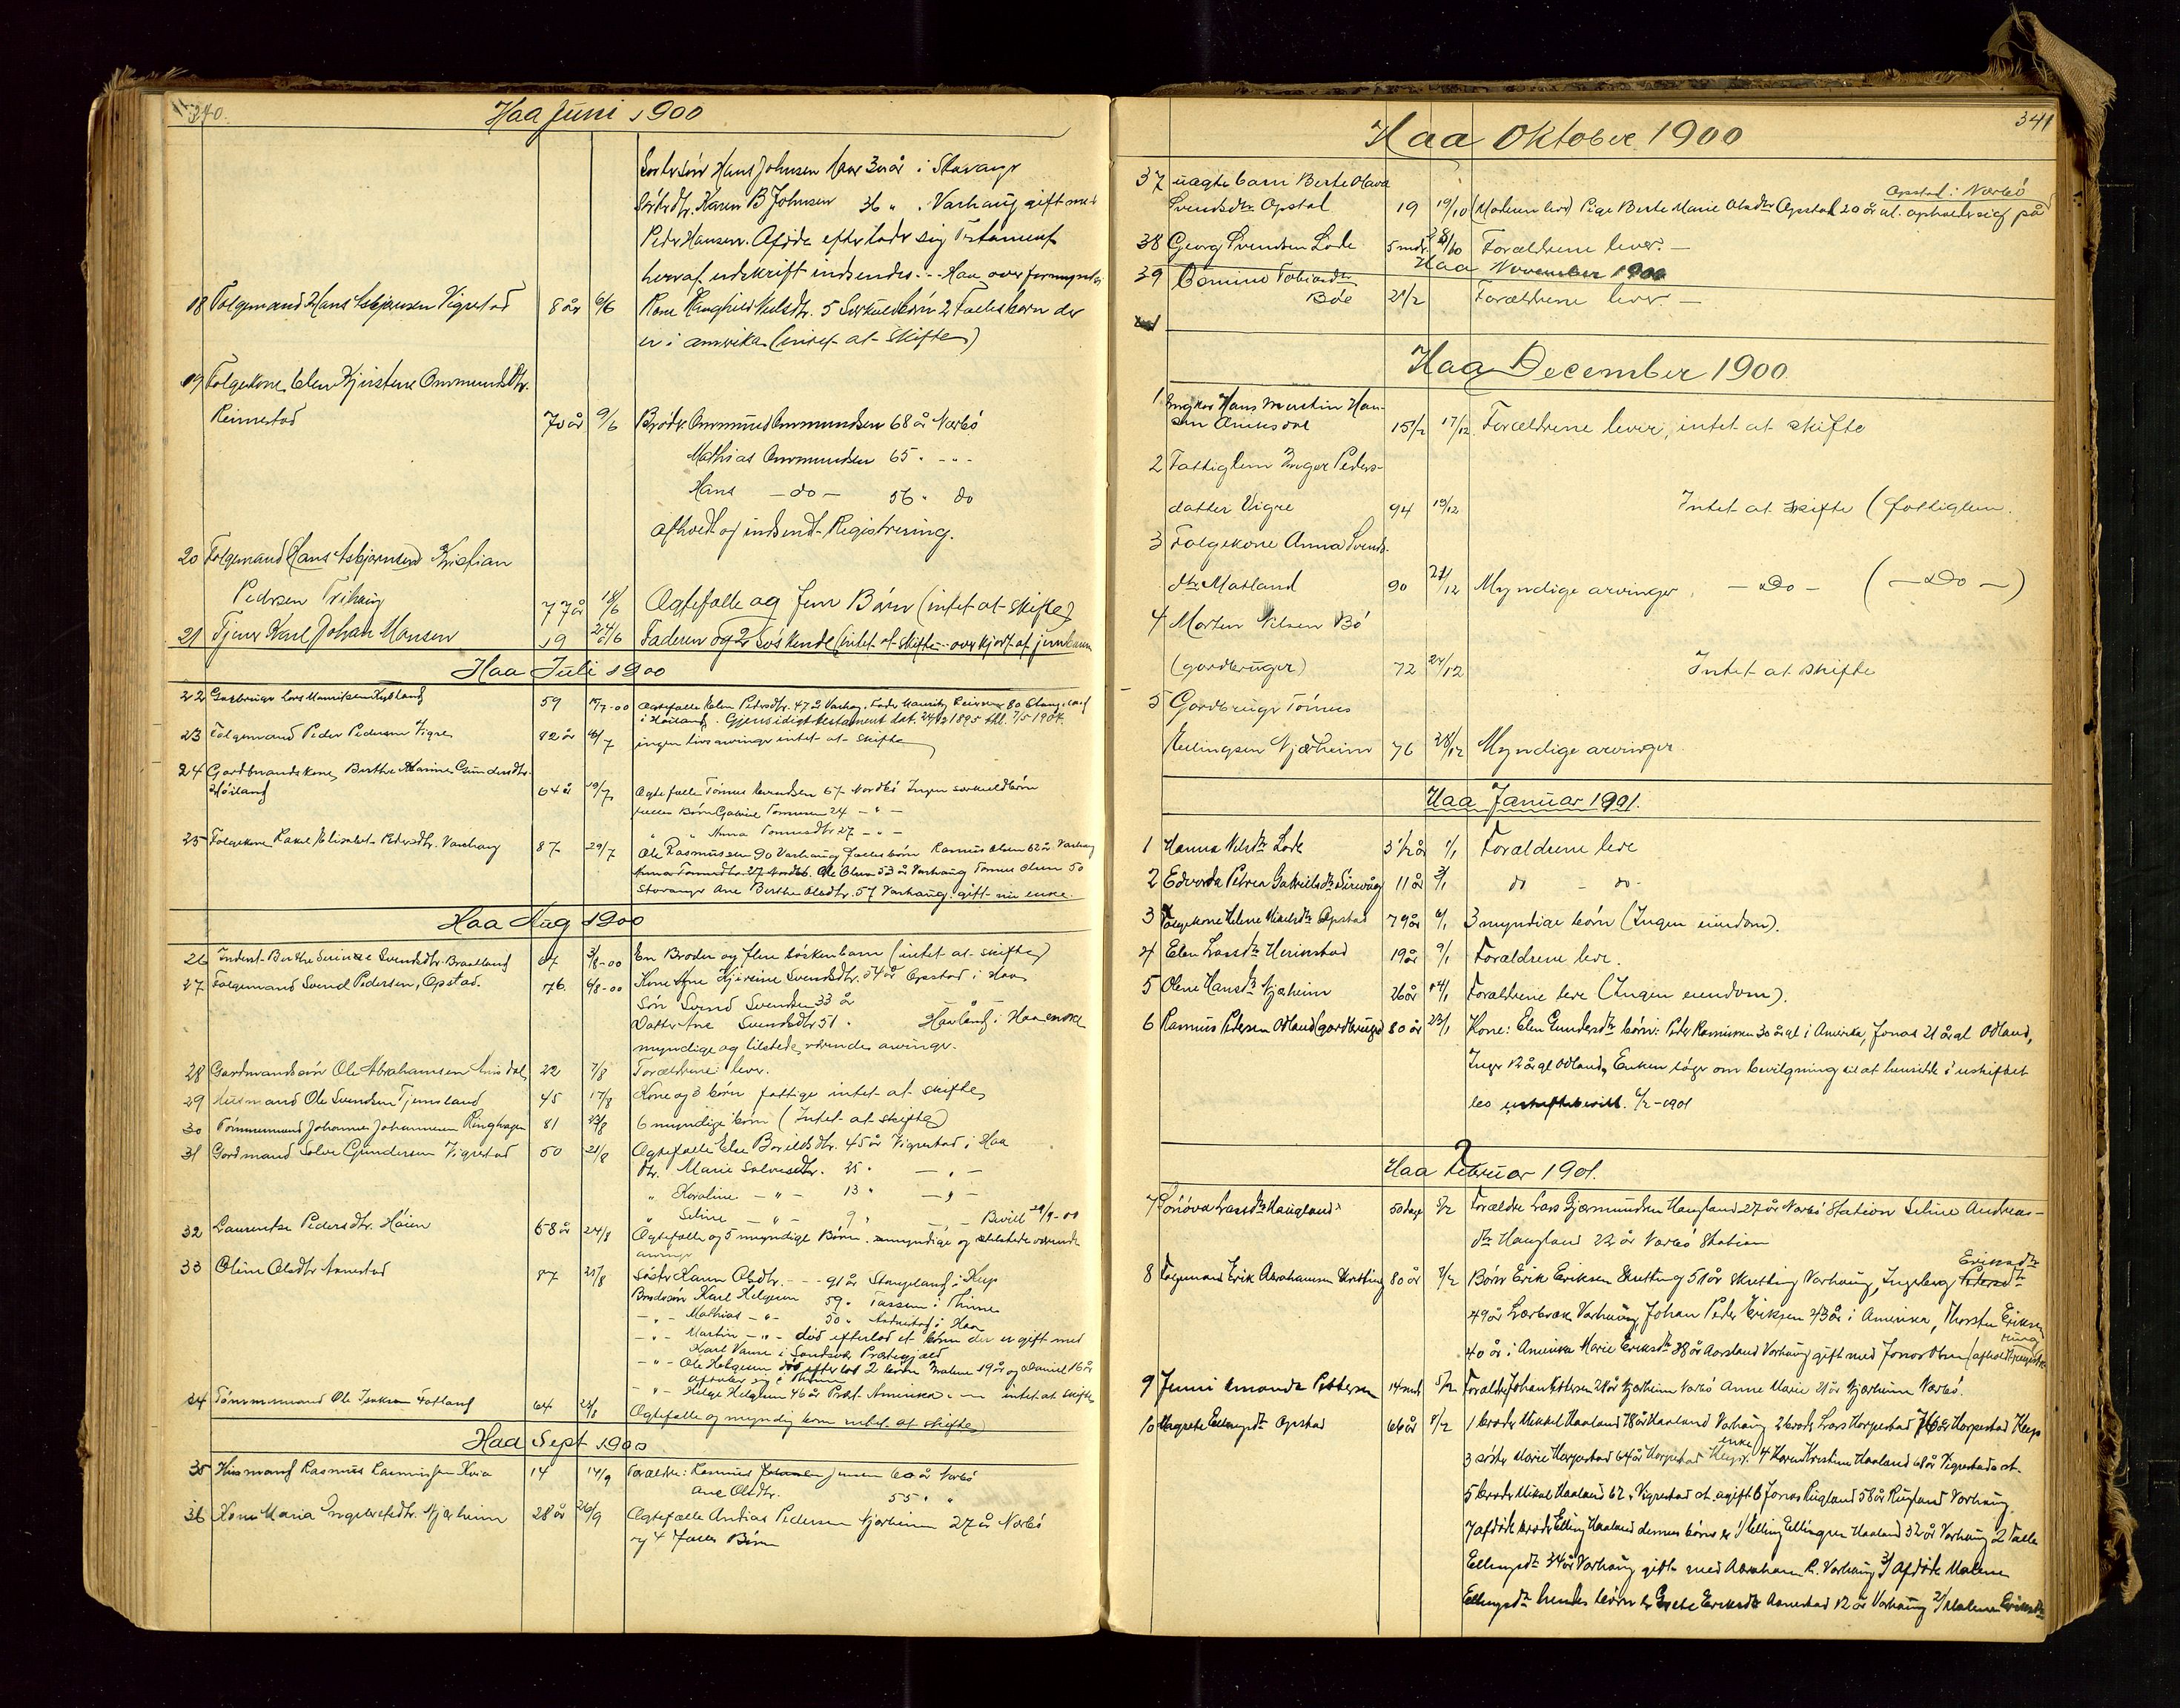 340.
Haa Juni 1900
Hans Johnsen Haar 30 år i Stavanger
Karen B Johnsen 36 " . Varhaug gift med
Peder Hansen. Afdøde efterlader sig Testament
hvoraf udskrift indsendes. Haa overformynderi
18 Folgemand Hans Asbjørnsen Vigrestad 8 år 6/6 Kone Ranghild Nielsdtr. 5 Særkuldbørn 2 Fællesbørn der
er i amerika (intet at skifte)
19 Folgekone Elen Kjirstine Ommundsdtr.
Reimestad 70 år 9/6 Brødr. Ommund Ommundsen 68 år Nærbø
Mathias Ommundsen 65 " - " -
Hans - do - 56 " do
afholdt og indsendt Registrering.
20 Folgemand Hans Asbjørnsen Kristian
Pedersen Frihaug 77 år 18/6 Ægtefælle og fem Børn (intet at skifte)
21 Tjener Karl Johan Hansen 19 24/6 Faderen og 2 Søskende (intet at skifte - overkjørt af jernbanen
Haa Juli 1900
22 Gardbruger Lars Mauritsen 59 17/7-00 Ægtefælle Elen Pedersdtr. 47 å Varhaug. Fader Maurits 80
i Høiland. Gjensidigt testament dat. 24/12 1895 thl. 7/5 1904.
23 Folgemand Peder Pedersen Vigre 82 år 16/7 ingen livsarvinger intet at skifte
24 Gardmandskone Berthe Marine Gundersdtr.
Høiland 64 å 19/7 Ægtefælle Tønnes 67 Nordbø Ingen særkuldbørn
fælles Børn Gabriel Tønnesen 24 - " -
" " Anna Tønnesdtr 27 - " -
25 Folgekone Rakel Elisabet Pedersdtr. Varhaug 87 29/7 Ole Rasmussen 90 Varhaug fællesbørn Rasmus Olsen 62 år Varhaug
Anna Tønnesdtr. 27 Nordbø. Ole Olsen 53 år Varhaug Tønnes Olsen 50
Stavanger Ane Berthe Olsdtr. 57 Varhaug. gift nu enke.
Haa Aug 1900
26 Inderst Berthe Serine Svendsdtr. Braatland 67 3/8-00 En Broder og flere søskenbarn (intet at skifte)
27 Folgemand Svend Pedersen, Opstad. 76 6/8-00 Kone Ane Kjirstine Svendsdtr. 54 år Opstad i Haa
Søn Svend Svendsen 33 år
Datter Ane Svendsdtr 51 " Haaland i Haa enke
myndige og tilstedeværende arvinger.
28 Gardmandssøn Ole Abrahamsen 22 7/8 Forældrene lever.
29 Husmand Ole Svendsen Tjemsland 45 17/8 Kone og 3 børn fattige intet at skifte
30 Tømmermand Johannes Johannesen Ringhagen 81 23/8 6 myndige børn (Intet at skifte)
31 Gardmand Salve Gundersen Vigrestad 50 21/8 Ægtefælle Else Borildsdtr. 45 år Vigrestad i Haa
Dtr. Marie Salvesdtr. 25 " - " -
" Karoline - " - 13 " - " -
" Seline - " - 9 " - Bevill 29/9-00
32 Laurentse Pedersdtr. Høien 68 år 24/8 Ægtefælle og 5 myndige Børn. myndige og tilstedeværende
arvinger
33 Oline Olsdtr Aanestad 87 21/8 Søster Karen Olsdtr. - - - 91 år Stangeland i Klep
Brodersøn Karl Helgesen 59 " Tassem i Thime
- " - Mathias - " - 50 " Aanestad i Haa
- " - Martin - " - død efterlod et børn der er gift med
Karl i Præstegjæld
- " - Ole Helgesen død efterlod 2 børn Malene 19 år og Daniel 16 år
opholder sig i Thime
- " - Helge Helgesen 46 år Amerika. - intet at skifte
34 Tømmermand Ole Isaksen Fotland 64 28/8 Ægtefælle og myndig børn intet at skifte
Haa Sept 1900
35 Husmand Rasmus Rasmussen Kvia 14 14/9 Forældre: Rasmus Jensen 60 år Nærbø
Ane Olsdtr. 55 " "
36 Kone Maria Ingebretsdtr. Njærheim 28 år 26/9 Ægtefælle Andias Pedersen Njærheim 27 år Nærbø
og 4 fælles Børn
341
Haa Oktober 1900
37 uægte barn Berte Olava Opstad i Nærbø
Svendsdtr Opstad 19 19/10 (Moderen lever) Pige Berte Marie Olsdtr Opstad 20 år al. opholder sig på
38 Georg Svendsen Lode 5 mdr. 28/10 Forældrene lever. -
Haa November 1900
39 Tobiasdtr
Bøe 21/2 Forældrene lever. -
Haa December 1900
1 Ungkar Hans Martin Han-
sen Aniksdal 15 1/2 17/12 Forældrene lever, intet at skifte
2 Fattiglem Inger Peders-
datter Vigre 94 19/12 Intet at skifte (fattiglem.
3 Folgekone Anna Svends-
dtr Matland 90 21/12 Myndige arvinger. - Do - ( - Do - )
4 Morten Nilsen Bø
(gardbruger) 72 24/12 Intet at skifte
5 Gardbruger Tønnes
Njærheim 76 28/12 Myndige arvinger
Haa Januar 1901.
1 Hanna Nilsdtr Lode 3 1/2 år 1/1 Forældrene leve
2 Edvarda Petrea Gabrielsdtr Sirevåg 11 år 3/1 do - do -
3 Folgekone Helene Opstad 79 år 6/1 3 myndige børn (Ingen eiendom).
4 Elen Larsdtr Herikstad 19 år 9/1 Forældrene leve.
5 Olene Hansdtr Njærheim 26 år 14/1 Forældrene leve (Ingen eiendom).
6 Rasmus Pedersen Odland (gardbruger) 80 år 23/1 Kone: Elen Gundersdtr børn: Peder Rasmussen 30 år gl i Amerika, Jonas 21 år gl Odland,
Inger 12 år gl Odland, Enken søger om bevilgning til at hensidde i uskiftet
bo uskiftebevill. 6/2-1901
Haa Februar 1901.
7 Larsdtr Haugland 50 dage 5/2 Forældre Lars Gjermundsen Haugland 27 år Nærbø Station Seline Andreas-
dtr Haugland 22 år Nærbø Station
8 Folgemand Erik Abrahamsen Skretting 80 år 7/2 Børn Erik Eriksen Skretting 51 år Skretting Varhaug, Ingeborg Pedersdtr Eriksdtr
49 år Varhaug, Johan Peder Eriksen 43 år i Amerika, Thorsten Eriksen
40 år i Amerika Marie Eriksdtr 38 år Aarsland Varhaug gift med Jonas Olsen (afholdt registrering
9 Jenni Amanda Pettersen 14 mdr 5/2 Forældre Johan Pettersen 28 år Njærheim Nærbø Anne Marie 21 år Njærheim Nærbø.
10 Margrete Ellingsdtr Opstad 66 år 8/2 1 broder Mikkel Haaland 78 år Haaland Varhaug 2 broder Lars Horpestad 76 år Horpestad Klep
3 søster Marie Horpestad 64 år Horpestad Klep. enke 4 Karen Kristine Haaland 68 år Vigrestad st.
5 broder Mikal Haaland 62 " Vigrestad st. ugift 6 Jonas Rugland 58 år Rugland Varhaug.
7 afdøde broder Elling Haaland dennes børn er 1/ Elling Ellingsen Haaland 32 år Varhaug 2
Ellingsdtr 34 år Varhaug gift med Abraham R. Varhaug 3/ Afdøde Malene
Ellingsdtr hendes børn er Grete Eriksdtr Aanestad 12 år Varhaug 2/ Malene Eriksdtr